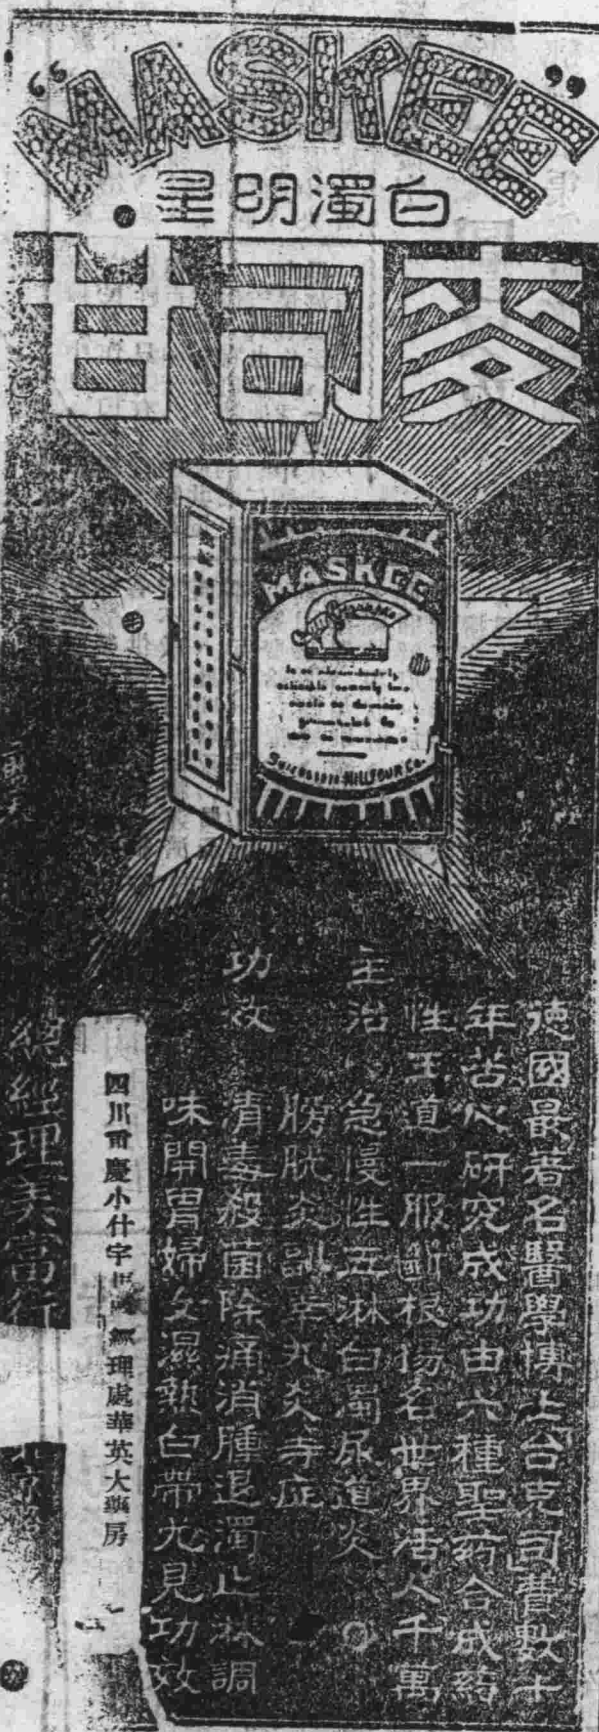 "MASKEE"
白濁明星
麥司甘
MASKEE
HILLFOUR Co.
德國最著名醫學博士台克司費數十
年苦心研究成功由六種聖葯合成純
性王道一服斷根揚名世界活人千萬
主治 急慢性五淋白濁尿道炎
膀胱炎副睾丸炎等症
功效 清毒殺菌除痛消腫退濁止淋調
味開胃婦女濕熱白帶尤見功效
四川重慶小什字 經理處華英大藥房
總經理美富行